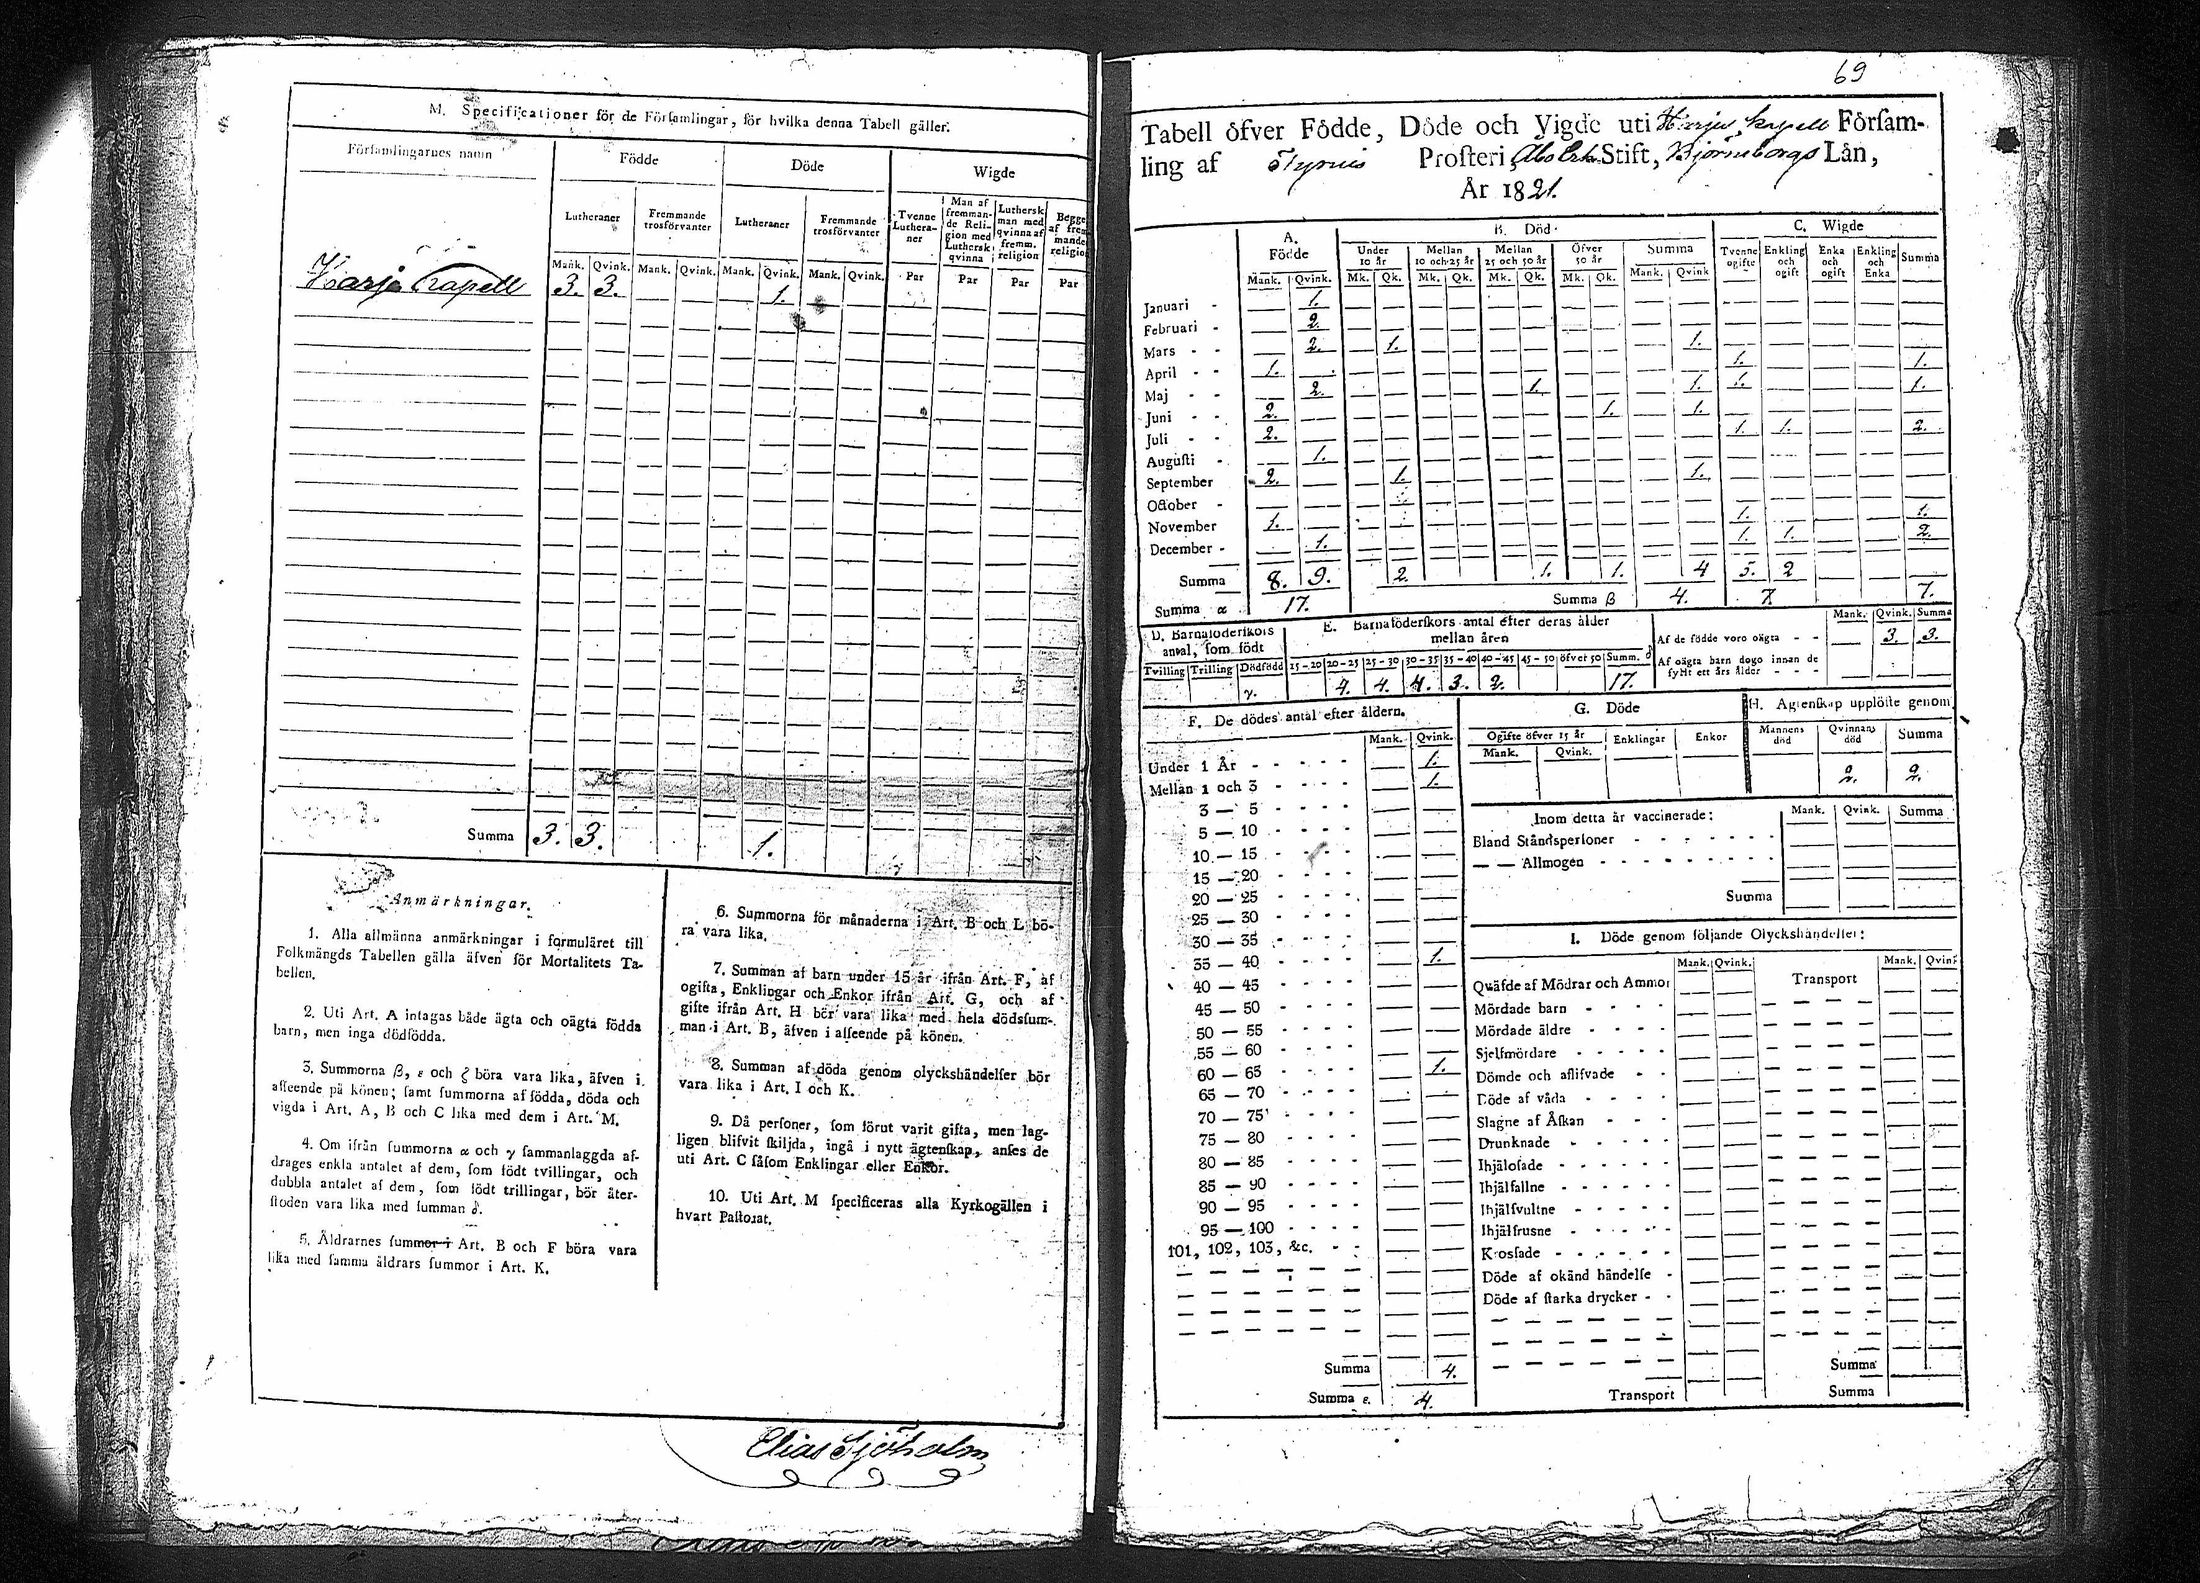 M. Specificationer för de Förſamlingar, för hvilka denna Tabell gäller.
Förſamlingarnes namn
Födde
Döde
Wigde
Lutheraner
Fremmande trosförvanter
Lutheraner
Fremmande trosförvanter
Tvenne Lutheraner
Man af fremmande Religion med Luthersk qvinna
Luthersk man med qvinna af fremm. religion
Begge af fremmande religion
Mank. Qvink. Mank. Qvink. Mank. Qvink. Mank. Qvink. Par Par Par Par
Harja Capell 3. 3. 1.
Summa 3. 3. 1.
Anmärkningar.
1. Alla allmänna anmärkningar i formuläret till
Folkmängds Tabellen gälla äfven för Mortalitets Ta-
bellen.
2. Uti Art. A intagas både ägta och oägta födda
barn, men inga dödſödda.
3. Summorna β, ε och ζ böra vara lika, äfven i
afſeende på könen; ſamt ſummorna af födda, döda och
vigda i Art. A, B och C lika med dem i Art. M.
4. Om ifrån ſummorna α och γ ſammanlaggda af-
drages enkla antalet af dem, ſom födt tvillingar, och
dubbla antalet af dem, ſom födt trillingar, bör åter-
ſtoden vara lika med ſumman δ.
5. Åldrarnes ſummor i Art. B och F böra vara
lika med ſamma åldrars ſummor i Art. K.
6. Summorna för månaderna i Art. B och L bö-
ra vara lika.
7. Summan af barn under 15 år ifrån Art. F, af
ogifta, Enklingar och Enkor ifrån Art. G, och af
gifte ifrån Art. H bör vara lika med hela dödsſum-
man i Art. B, äfven i afſeende på könen.
8. Summan af döda genom olyckshändelſer bör
vara lika i Art. I och K.
9. Då perſoner, ſom förut varit gifta, men lag-
ligen blifvit ſkiljda, ingå i nytt ägtenſkap, anſes de
uti Art. C ſåſom Enklingar eller Enkor.
10. Uti Art. M ſpecificeras alla Kyrkogällen i
hvart Paſtorat.
Elias Sjöholm
69
Tabell öfver Födde, Döde och Vigde uti Harju kapell Förſam-
ling af Tyrvis Proſteri, Åbo Erke Stift, Björneborgs Län,
År 1821.
A. Födde
B. Död
C. Wigde
Under 10 år
Mellan 10 och 25 år
Mellan 25 och 50 år
Öfver 50 år
Summa
Tvenne ogifte
Enkling och ogift
Enka och ogift
Enkling och Enka
Summa
Mank. Qvink. Mk. Qk. Mk. Qk. Mk. Qk. Mk. Qk. Mank. Qvink
Januari 1.
Februari 2.
Mars 2. 1. 1.
April 1. 1. 1.
Maj 2. 1. 1. 1. 1.
Juni 2. 1. 1.
Juli 2. 1. 1. 2.
Auguſti 1.
September 2. 1. 1.
October
November 1. 1. 1.
December 1. 1. 1. 2.
Summa 8. 9. 2. 1. 1. 4 5. 2
Summa α 17. Summa β 4. 7. 7.
D. Barnaföderſkors antal, ſom födt
Tvilling Trilling Dödfödd
γ.
E. Barnaföderſkors antal efter deras ålder
mellan åren
15-20 20-25 25-30 30-35 35-40 40-45 45-50 öfver 50 Summ. δ
4. 4. 4. 3. 2. 17.
Mank. Qvink. Summa
Af de födde voro oägta 3. 3.
Af oägta barn dogo innan de
fyllt ett års ålder
F. De dödes antal efter åldern.
Mank. Qvink.
Under 1 År 1.
Mellan 1 och 3 1.
3 — 5
5 — 10
10 — 15
15 — 20
20 — 25
25 — 30
30 — 35
35 — 40 1.
40 — 45
45 — 50
50 — 55
55 — 60
60 — 65 1.
65 — 70
70 — 75
75 — 80
80 — 85
85 — 90
90 — 95
95 — 100
101, 102, 103, &c.
Summa 4.
Summa ε. 4.
G. Döde
Ogifte öfver 15 år
Mank. Qvink.
Enklingar
Enkor
H. Ägtenſkap upplöſte genom
Mannens död
Qvinnans död
Summa
2. 2.
Inom detta år vaccinerade: Mank. Qvink. Summa
Bland Ståndsperſoner
— — Allmogen
Summa
I. Döde genom följande Olyckshändelſer:
Mank. Qvink. Transport Mank. Qvink
Quäfde af Mödrar och Ammor
Mördade barn
Mördade äldre
Sjelfmördare
Dömde och aflifvade
Döde af våda
Slagne af Åſkan
Drunknade
Ihjälofade
Ihjälfallne
Ihjälſvultne
Ihjälfrusne
Krosſade
Döde af okänd händelſe
Döde af ſtarka drycker
Summa
Transport Summa